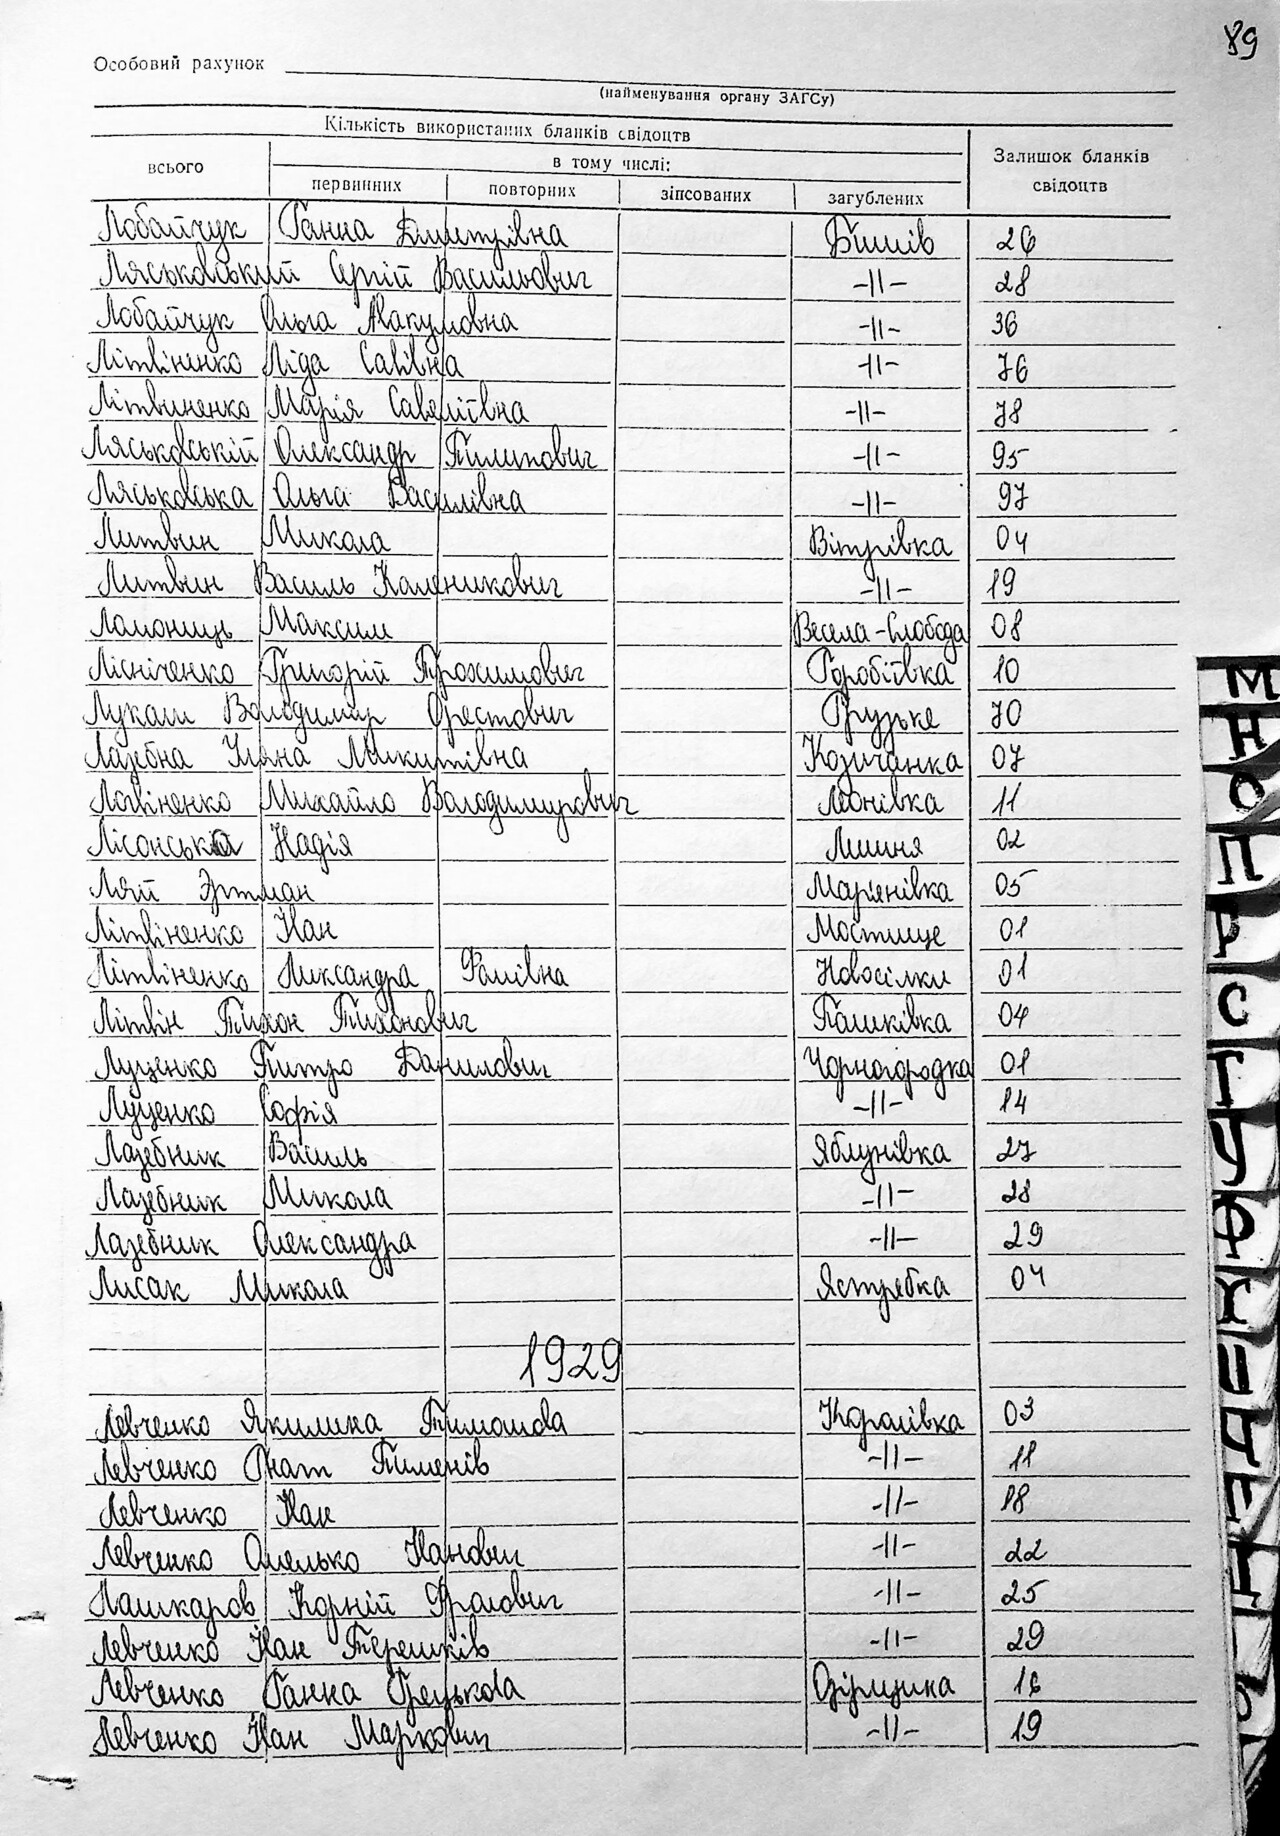 89
Особовий рахунок
(найменування органу ЗАГСу)
Кількість використаних бланків свідоцтв
всього
в тому числі:
первинних повторних зіпсованих загублених
Залишок бланків свідоцтв
Лобайчук Ганна Дмитрівна Бишів 26
Ляськовський Сергій Васильович -//- 28
Лобайчук Ольга Макумовна -//- 36
Літвіненко Ліда Савівна -//- 76
Літвиненко Марія Савеліївна -//- 78
Ляськовській Олександр Пилипович -//- 95
Ляськовська Ольга Василівна -//- 97
Литвин Микола Вітрівка 04
Литвин Василь Каленикович -//- 19
Ламониць Максим Весела-Слобода 08
Лісніченко Григорій Прохимович Горобіївка 10
Лукаш Володимир Орестович Грузьке 70
Лазебна Уляна Микитівна Козичанка 07
Логвіненко Михайло Володимирович Леонівка 11
Лісонська Надія Лишня 02
Ляй Эртман Мар'янівка 05
Літвіненко Іван Мостище 01
Літвіненко Ликсандра Фамівна Новосілки 01
Літвін Тихон Тихонович Пашківка 04
Луценко Питро Данилович Чорногородка 01
Луценко Софія -//- 14
Лазебник Василь Яблунівка 27
Лазебник Микола -//- 28
Лазебник Олександра -//- 29
Лисак Микола Ястребка 04
1929
Левченко Якилина Тимошова Королівка 03
Левченко Гнат Пименів -//- 11
Левченко Іван -//- 18
Левченко Омелько Іванович -//- 22
Лашкаров Корній Фролович -//- 25
Левченко Іван Терешків -//- 29
Левченко Ганна Грецькова Озірщина 16
Левченко Іван Маркович -//- 19
М
Н
О
П
Р
С
Т
У
Ф
Х